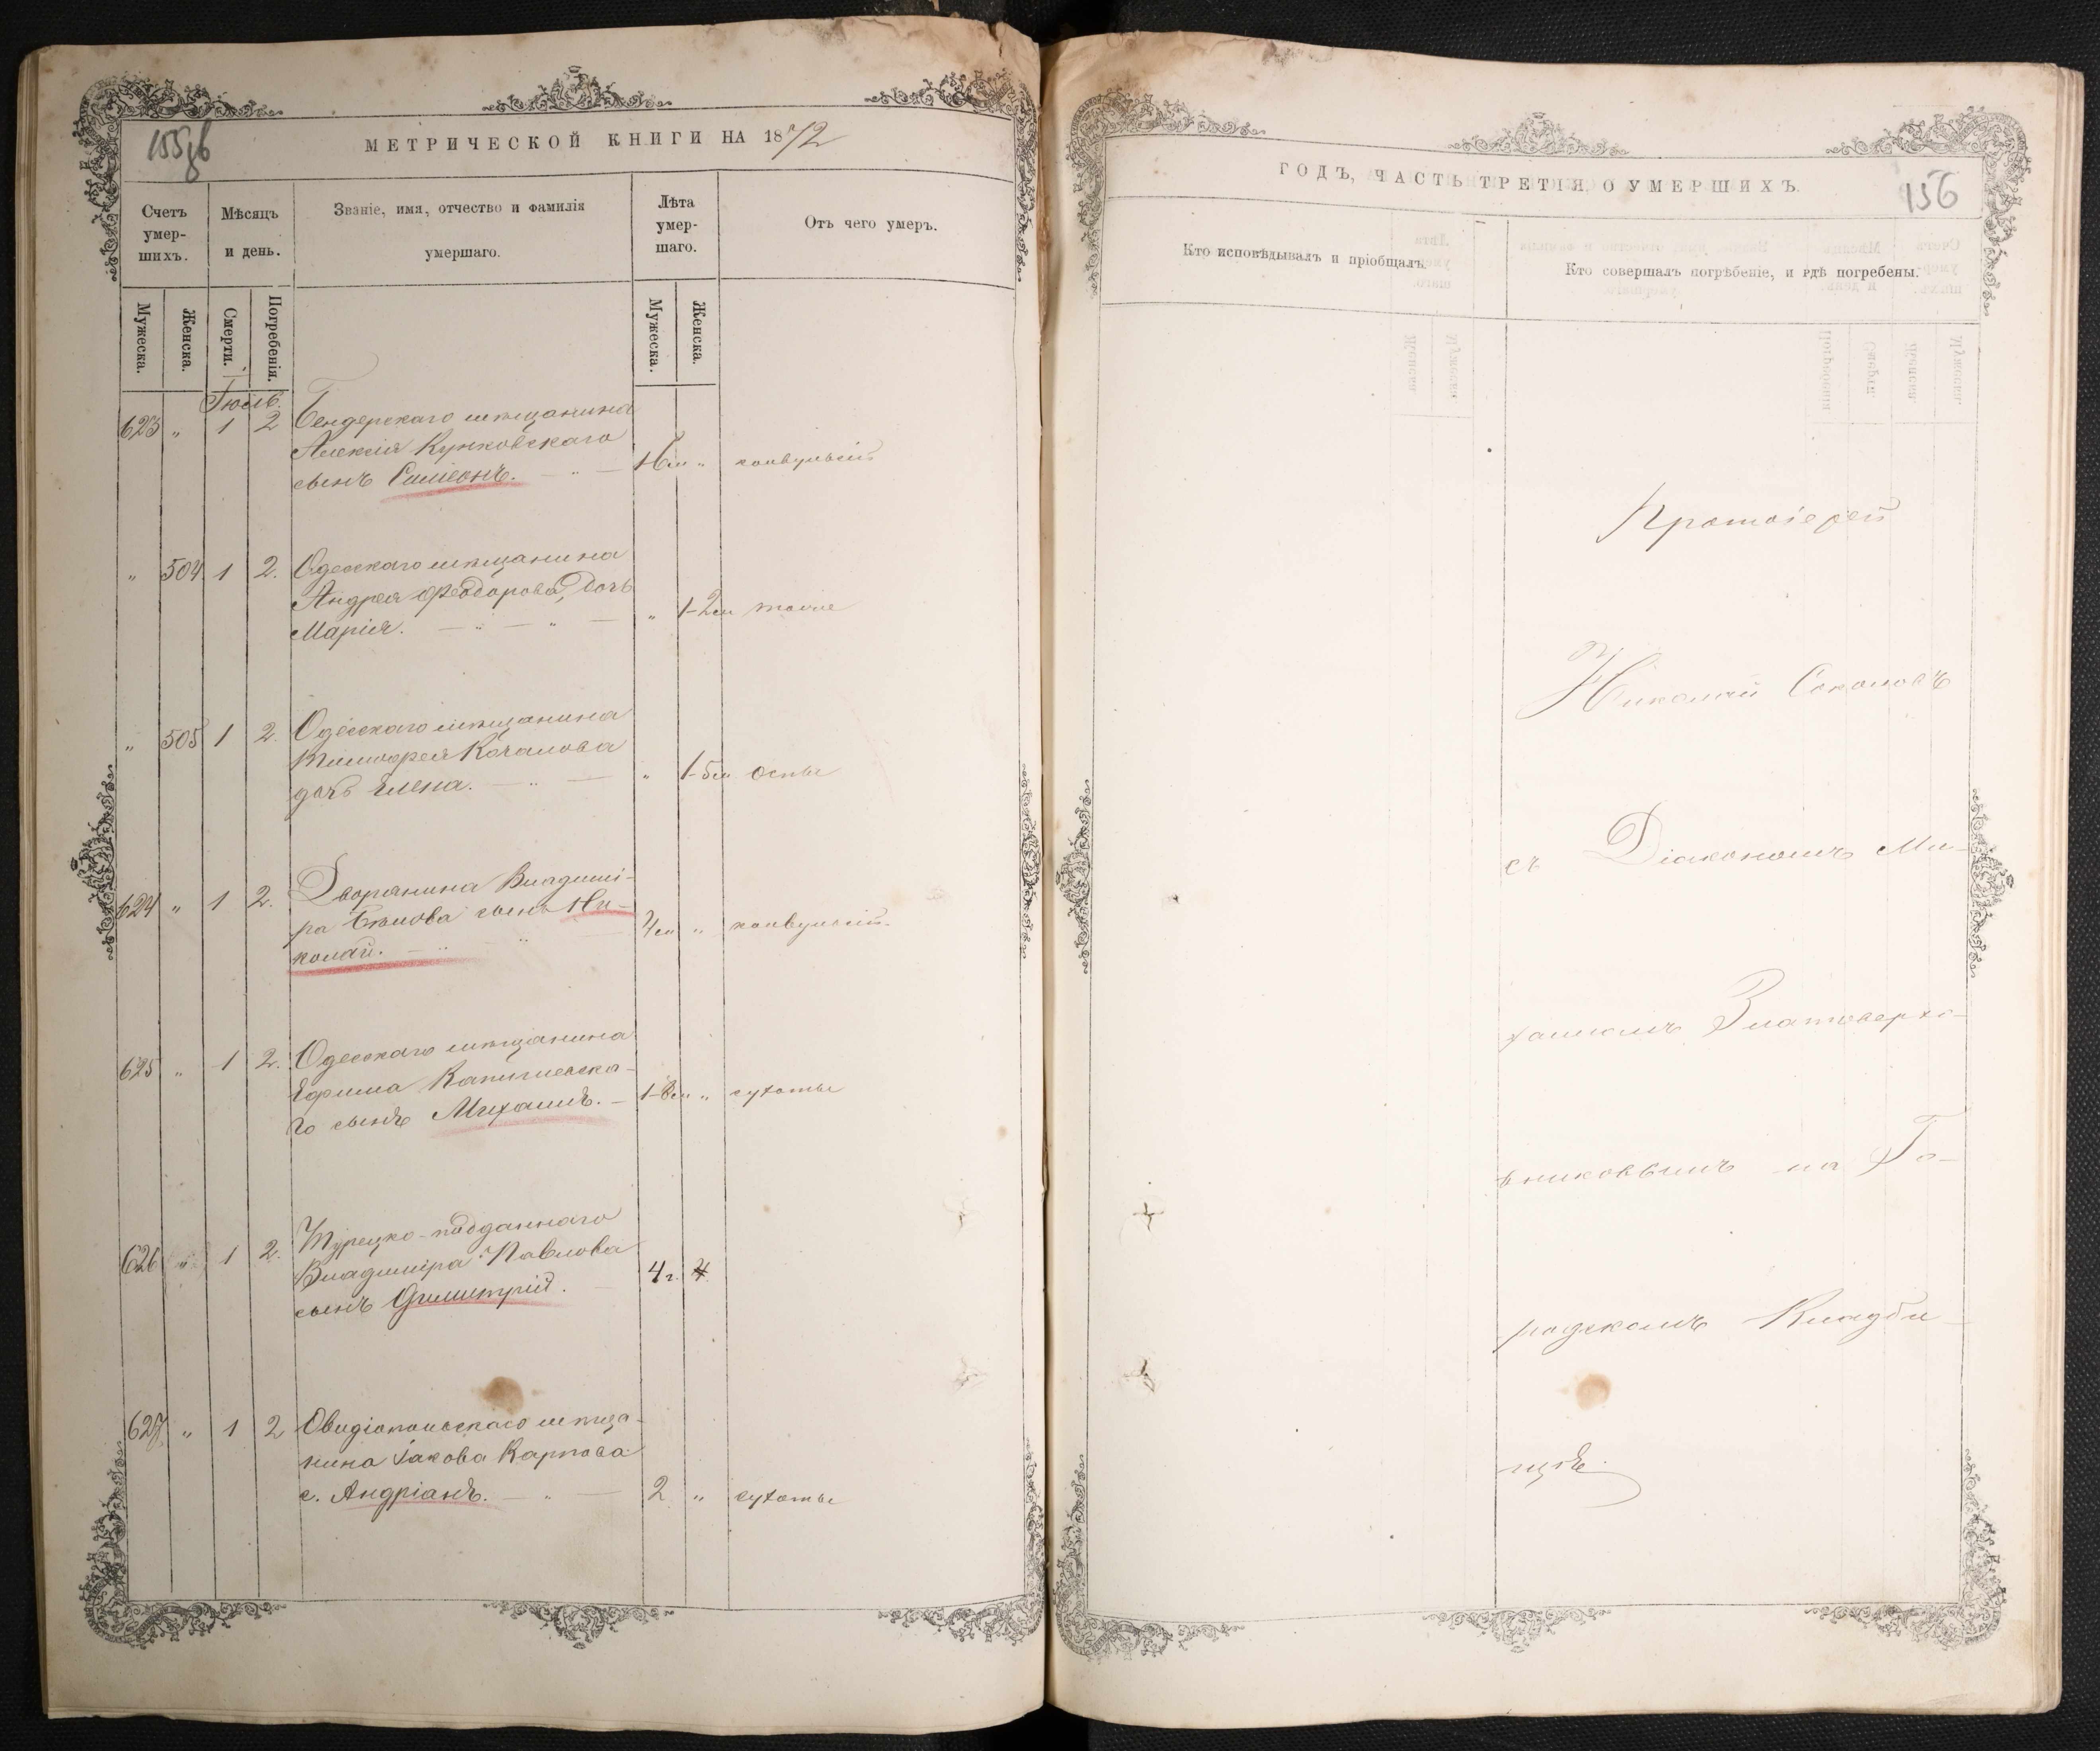 155об
МЕТРИЧЕСКОЙ КНИГИ НА 1872
Счетъ умер- шихъ.
Мѣсяцъ и день.
Званіе, имя, отчество и фамилія умершаго.
Лѣта умер- шаго.
Отъ чего умеръ.
Мужеска. Женска. Смерти. Погребенія. Мужеска. Женска.
Іюль.
623 „ 1 2 Бендерскаго мѣщанина
Алексія Кунковскаго
сынъ Симеонъ. — „ — 1-6м „ конвульсій
„ 504 1 2. Одесскаго мѣщанина
Андрея Ѳеодорова, дочь
Марія. — „ — „ — „ 1-2м тоже
„ 505 1 2. Одесскаго мѣщанина
Тимоѳея Качалова
дочь Елена. — „ — „ 1-5м оспы
624 „ 1 2. Дворянина Владимі-
ра Бѣлова сынъ Ни-
колай. — „ „ — 4м „ конвульсій.
625 „ 1 2. Одесскаго мѣщанина
Ефима
го сынъ Михаилъ. — 1-8м „ сухоты
626 „ 1 2. Турецко-подданнаго
Владиміра Павлова
сынъ Димитрій. — 4г.
627 „ 1 2 Овидіопольскаго мѣща-
нина Іакова Карпова
с. Андріанъ. — „ — 2 „ сухоты
ГОДЪ, ЧАСТЬ ТРЕТІЯ, О УМЕРШИХЪ.
156
Кто исповѣдывалъ и пріобщалъ.
Кто совершалъ погребеніе, и гдѣ погребены.
Протоіерей
Николай Соколовъ
съ Діакономъ Ми-
хаиломъ Златоверхо-
вниковымъ на Го-
родскомъ Кладби-
щѣ.